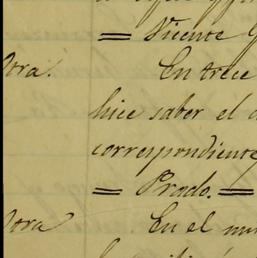 = Vicente
ora. En trece
hice saber el
correspondiente
= Prado. =
ora En el